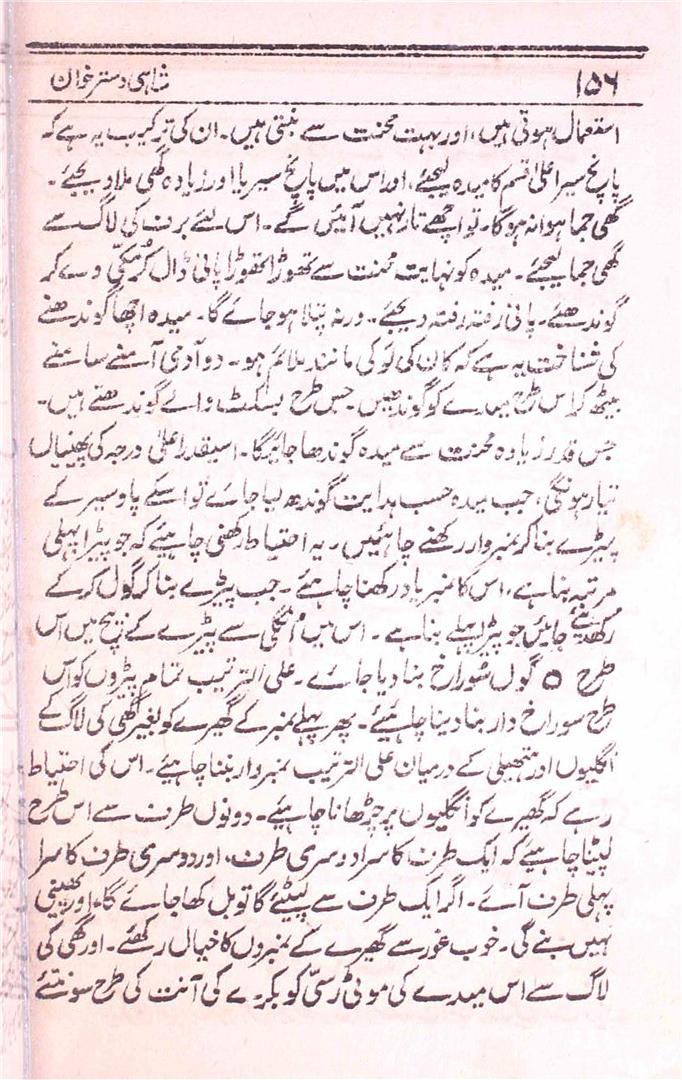 ۱۵۶ شاہی دسترخوان
استعمال ہوتی ہیں، اور بہت محنت سے بنتی ہیں۔ ان کی ترکیب یہ ہے کہ
پانچ سیر اعلیٰ قسم کا میدہ لیجئے، اور اس میں پانچ سیر یا اور زیادہ گھی ملا دیجئے۔
گھی جما ہوا نہ ہوگا۔ تو اچھے تار نہیں آئیں گے۔ اس لئے برف کی لاگ سے
گھی جما لیجئے۔ میدہ کو نہایت محنت سے تھوڑا تھوڑا پانی ڈال کر مُکّی دے کر
گوندھئے۔ پانی رفتہ رفتہ دیجئے۔ ورنہ پتلا ہو جائے گا۔ میدہ اچھا گوندھنے
کی شناخت یہ ہے کہ کان کی لَو کی مانند ملائم ہو۔ دو آدمی آمنے سامنے
بیٹھ کر اس طرح میدے کو گوندھیں۔ جس طرح بسکٹ والے گوندھتے ہیں۔
جس قدر زیادہ محنت سے میدہ گوندھا جائیگا۔ اسیقدر اعلیٰ درجہ کی پھینیاں
تیار ہونگی، جب میدہ حسب ہدایت گوندھ لیا جائے تو اسکے پاؤ سیر کے
پیڑے بنا کر نمبر وار رکھنے چاہئیں۔ یہ احتیاط رکھنی چاہیئے کہ جو پیڑا پہلی
مرتبہ بنا ہے، اس کا نمبر یاد رکھنا چاہئے۔ جب پیڑے بنا کر گول کرکے
رکھدیئے جائیں جو پیڑا پہلے بنا ہے۔ اس میں انگلی سے پیڑے کے بیچ میں اس
طرح ○ گول سُوراخ بنا دیا جائے۔ علی الترتیب تمام پیڑوں کو اس
طرح سوراخ دار بنا دینا چاہیئے۔ پھر پہلے نمبر کے گھیرے کو بغیر گھی کی لاگ کے
انگلیوں اور ہتھیلی کے درمیان علی الترتیب نمبر وار بٹنا چاہیئے۔ اس کی احتیاط
رہے کہ گھیرے کو انگلیوں پر چڑھانا چاہیئے۔ دونوں طرف سے اس طرح
لپیٹنا چاہیئے کہ ایک طرف کا سرا دوسری طرف، اور دوسری طرف کا سرا
پہلی طرف آئے۔ اگر ایک طرف سے لپیٹئے گا تو بل کھا جائے گا، اور پھینی
نہیں بنے گی۔ خوب غور سے گھیرے کے نمبروں کا خیال رکھئے۔ اور گھی کی
لاگ سے اس میدے کی موٹی رسّی کو بکرے کی آنت کی طرح سونتئے